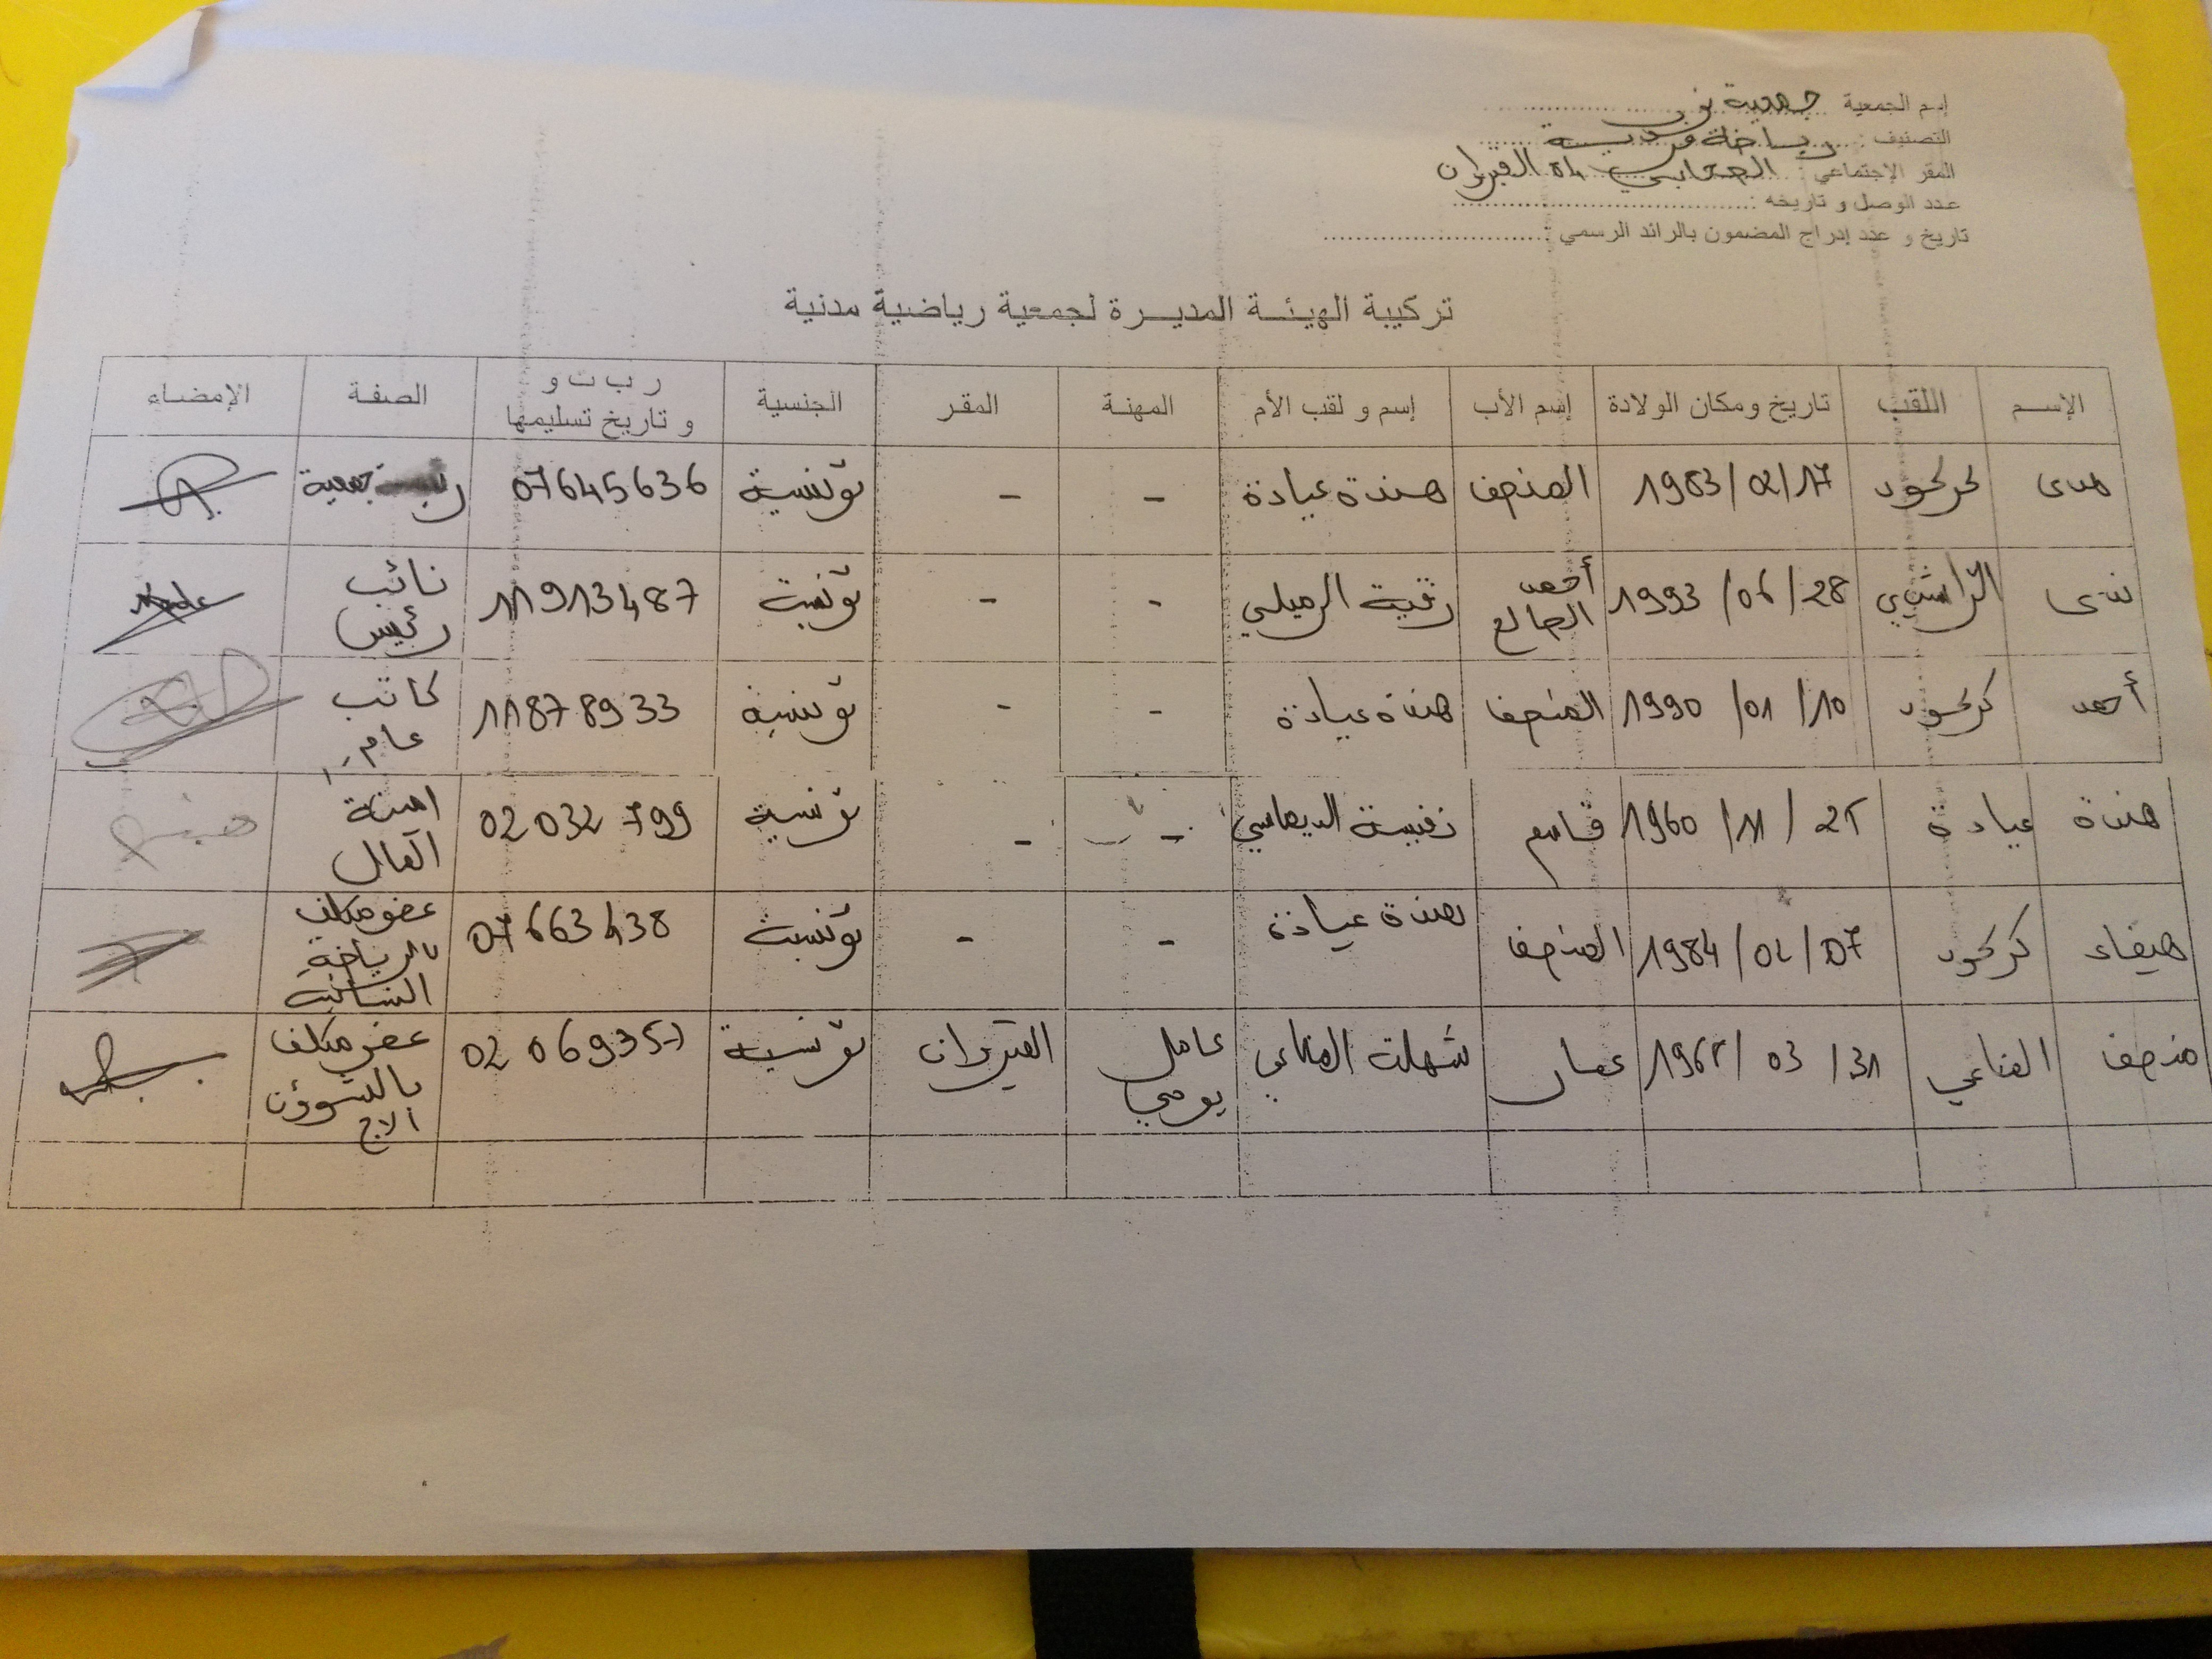 إسم الجمعية جمعية
التصنيف : رياضة فردية
المقر الإجتماعي : القيروان
عدد الوصل و تاريخه :
تاريخ و عدد إدراج المضمون بالرائد الرسمي :
تركيبة الهيئة المديرة لجمعية رياضية مدنية
الإسم اللقب تاريخ ومكان الولادة إسم الأب إسم و لقب الأم المهنة المقر الجنسية ر ب ت و و تاريخ تسليمها الصفة الإمضاء
هدى كركود 17/02/1983 المنصف هندة عيادة - - تونسية 07645636 جمعية
ندى الراشدي 28/06/1993 أحمد الصالح رقية الرميلي - - تونسية 11913487 نائب رئيس
أحمد كركود 10/01/1990 المنصف هندة عيادة - - تونسية 11878933 كاتب عام
هندة عيادة 1960/11/ قاسم نفيسة - - تونسية 02032799 امينة المال
هيفاء كركود 1984/ المنصف هندة عيادة - - تونسية 07663438 عضو مكلف بالرياضة النسائية
منصف القناعي 31/03/ عمار شهلة القناعي عامل يومي القيروان تونسية عضو مكلف بالشؤون الاج